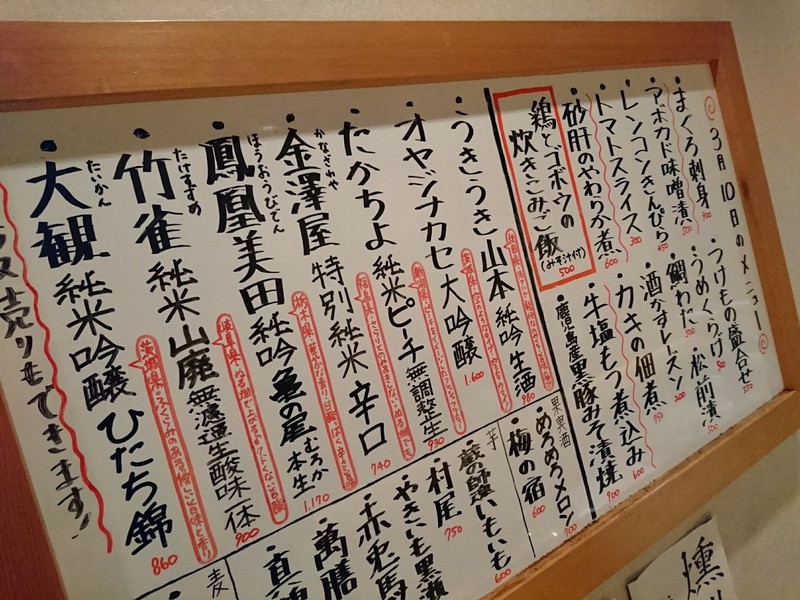 3月10日のメニュー
まぐろ刺身 700
アボカド味噌漬 500
レンコンきんぴら 450
トマトスライス 300
砂肝のやわらか煮 600
つけもの盛合せ 550
うめくらげ
松前漬 500
鯛わた 500
酒かすレーズン 200
カキの佃煮 750
牛塩もつ煮込み 600
鹿児島産黒豚みそ漬焼 900
鶏とゴボウの
炊きこみご飯
(みそ汁付) 500
うきうき山本 純吟 生酒 980
オヤジナカセ 大吟醸 1.600
たかちよ 純米ピーチ 無調整生 930
かなざわや
金澤屋 特別純米 辛口 740
ほうおうびでん
鳳凰美田 純吟 亀の尾 むろか本生 1.170
たけすずめ
竹雀 純米 山廃 無濾過生酸味一体 900
たいかん
大観 純米吟醸 ひたち錦 860
売りもできます!
果実酒
めろめろメロン 700
梅の宿 600
芋
蔵の師魂いもいも 600
村尾 750
やきいも黒瀬
赤兎馬
萬膳
麦
燻